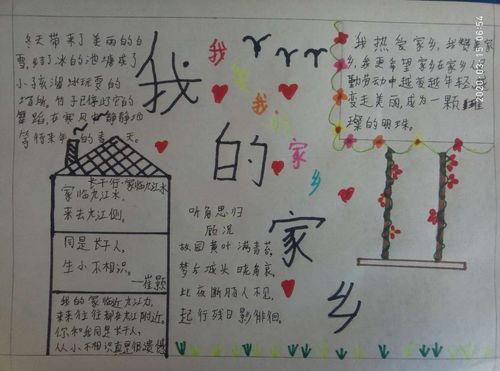 冬天带来了美丽的白
雪,结了冰的池塘成了
小孩溜冰玩耍的
等待来年的春天。
我的家乡
我爱我的家乡
我热爱家乡,我赞美家
乡,我更希望家乡在家乡人
勤劳动中越变越年轻
变走美丽,成为一颗璀
璨的明珠。
2020.03.15 06:54
长干行·家临九江水
家临九江水,
来去九江侧。
同是长干人,
生小不相识。
—崔颢
我的家临近九江力,
来来往往都在九江附近。
你和我同是长干人,
从小不相识真是很遗憾
听角思归
顾况
故园黄叶满青苔,
梦后城头晓角哀。
此夜断肠人不见,
起行残月影徘徊。